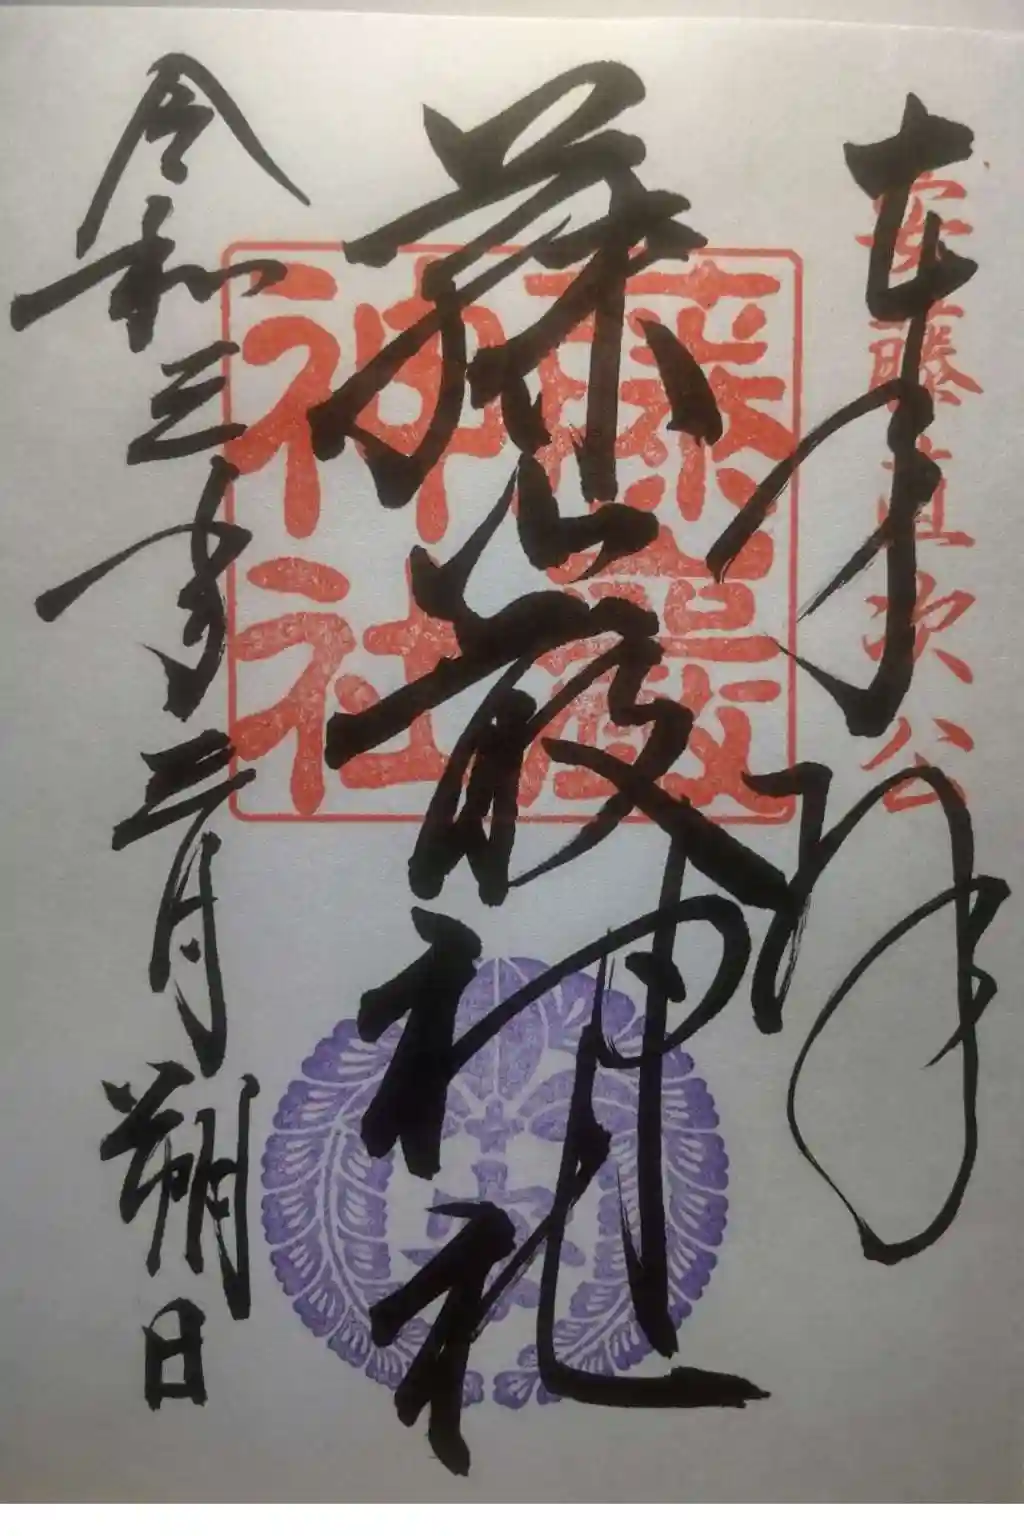 奉拝
安藤直次公
藤巌神社
藤巖神社
安
令和三年三月朔日